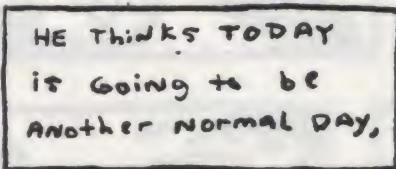 HE THiNKS TODAY
is GoiNg to be
ANother NormAL DAY,